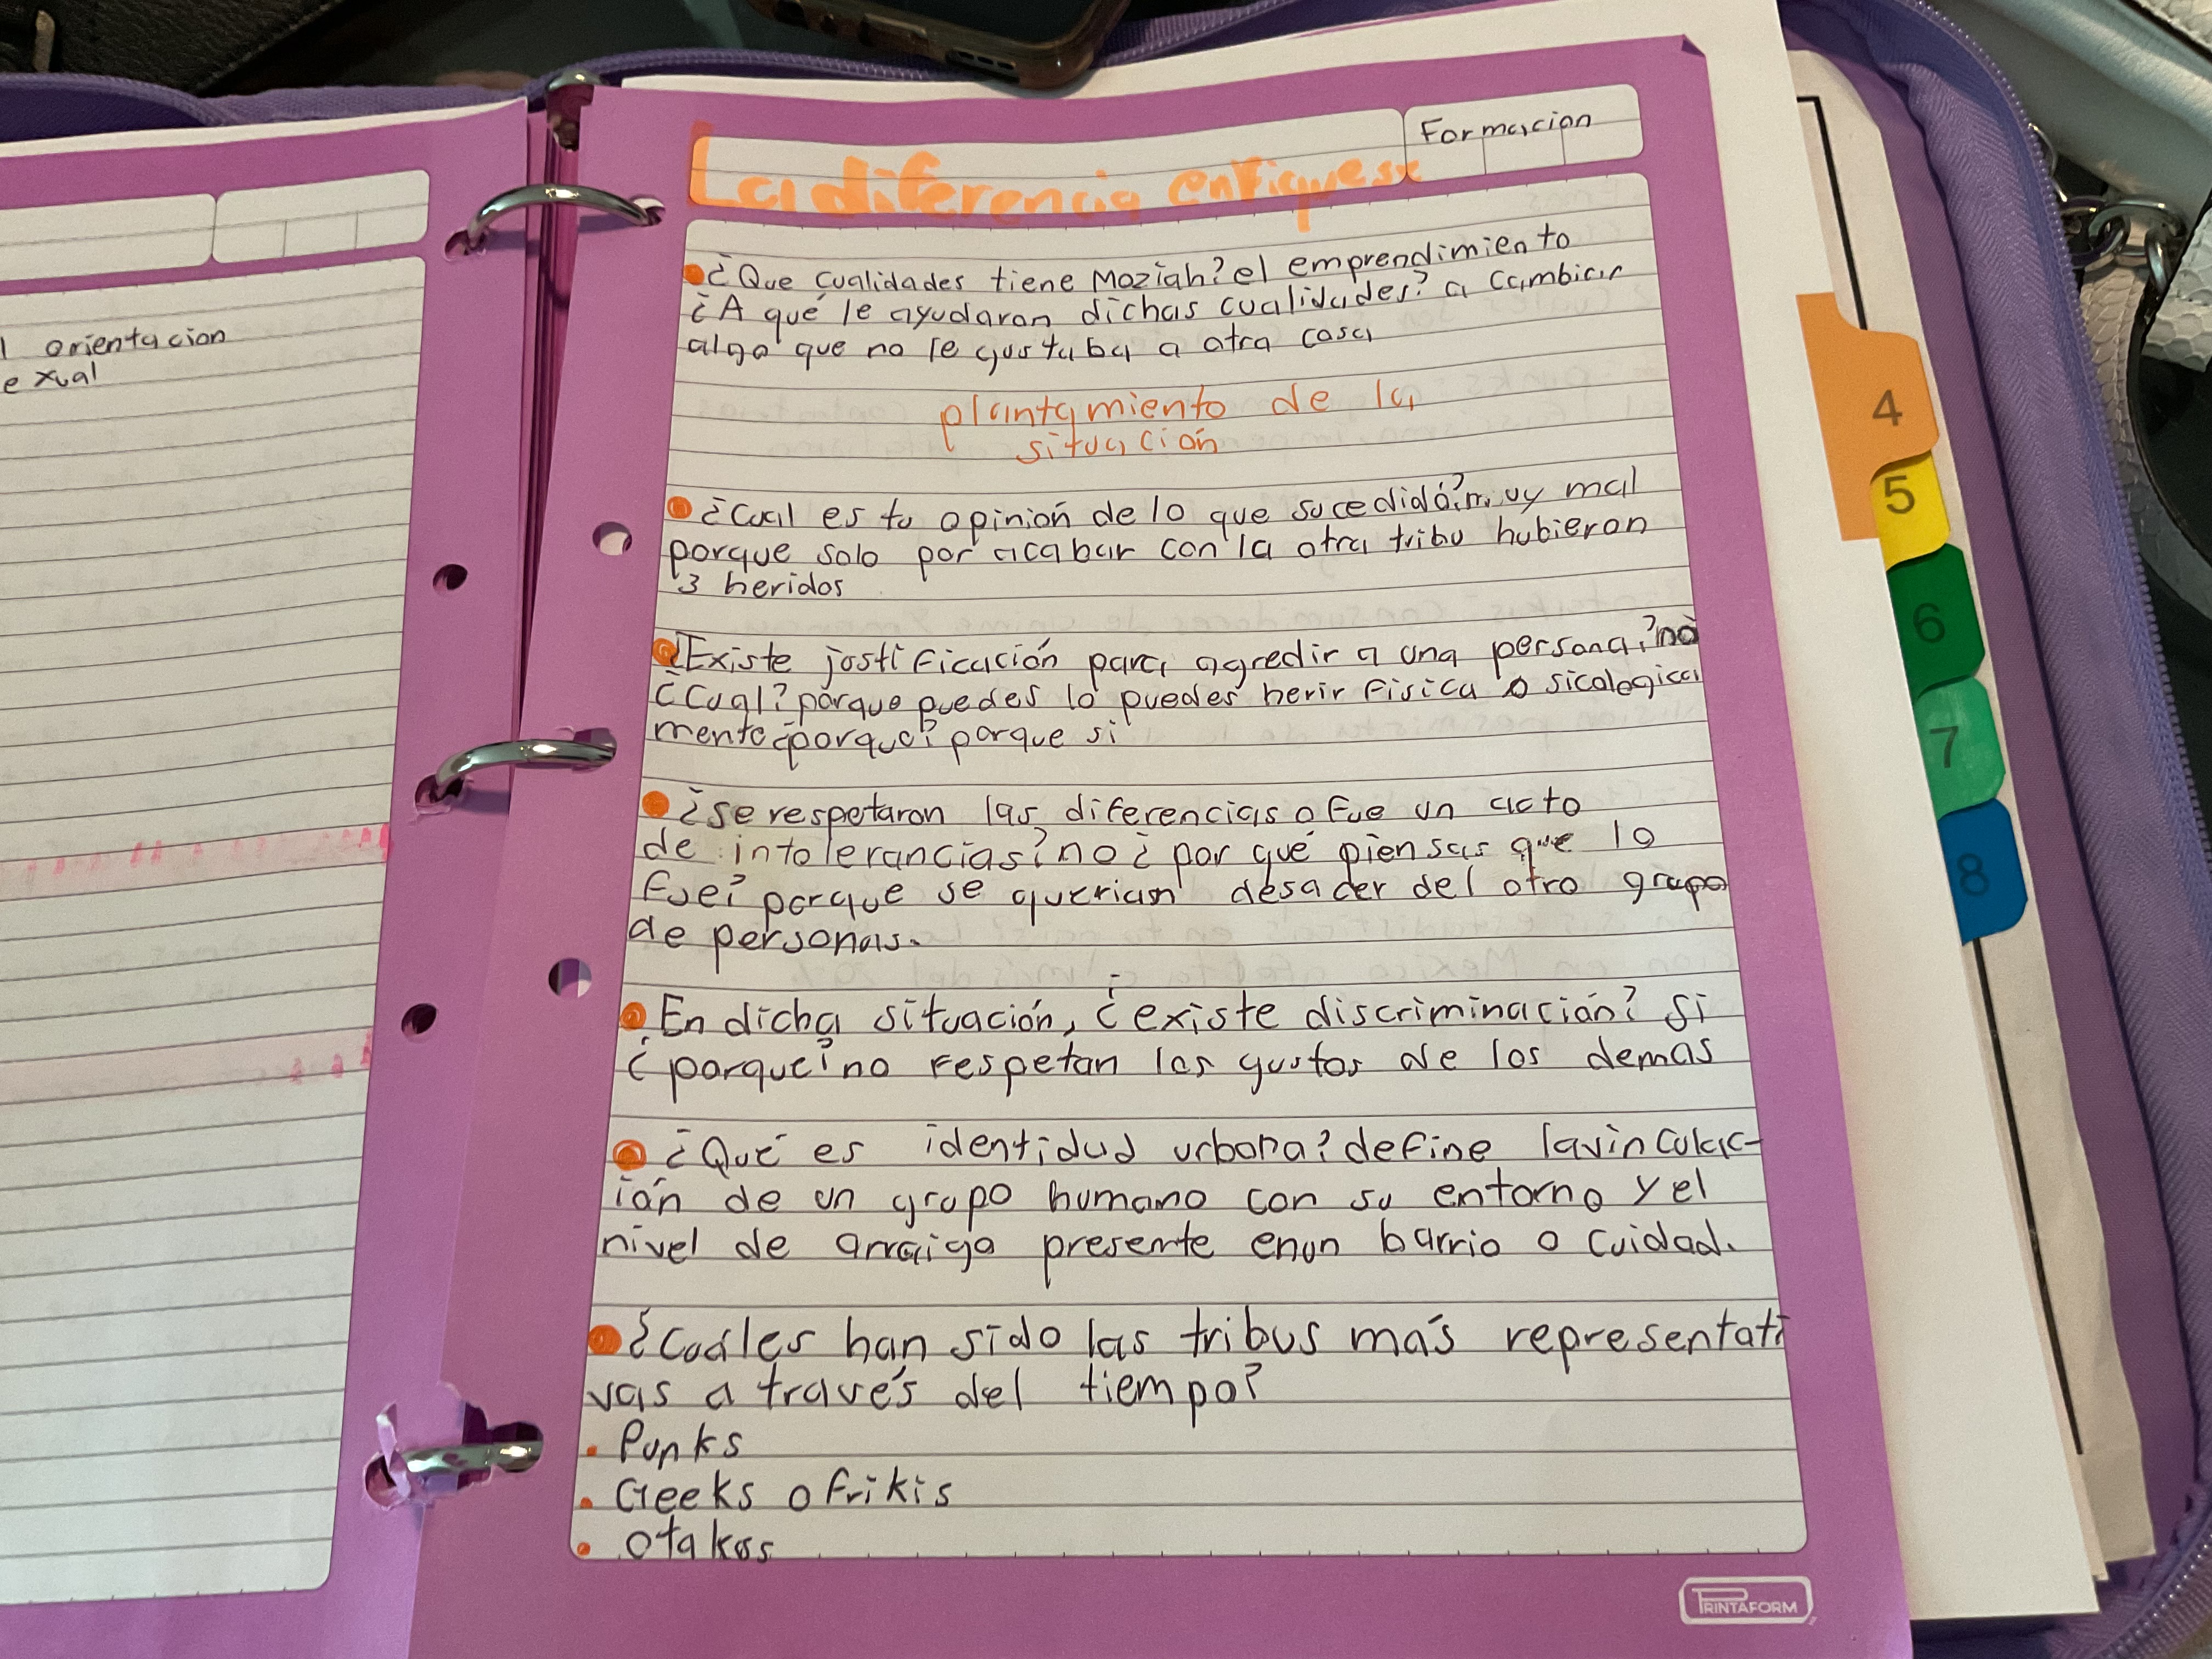 l orientacion
exual
Formacion
La diferencia enriquese
• ¿Que cualidades tiene Moziah? el emprendimiento
¿A qué le ayudaron dichas cualidades? a cambiar
algo que no le gustaba a otra cosa
plantamiento de la
situación
• ¿Cual es tu opinión de lo que sucedidó? muy mal
porque solo por acabar con la otra tribu hubieron
3 heridos
• ¿Existe justificación para agredir a una persona? no
¿Cual? porque puedes lo puedes herir fisica o sicologica
mente ¿porque? porque si
• ¿se respetaron las diferencias o fue un acto
de intolerancias? no ¿por qué piensas que lo
fue? porque se querian desacer del otro grupo
de personas.
• En dicha situación, ¿existe discriminación? si
¿porque? no respetan los gustos de los demas
• ¿Qué es identidad urbana? define la vinculac-
ión de un grupo humano con su entorno y el
nivel de arraigo presente en un barrio o cuidad.
• ¿Cuáles han sido las tribus más representati
vas a través del tiempo?
• Punks
• Geeks o frikis
• Otakus
4
5
6
7
8
PRINTAFORM